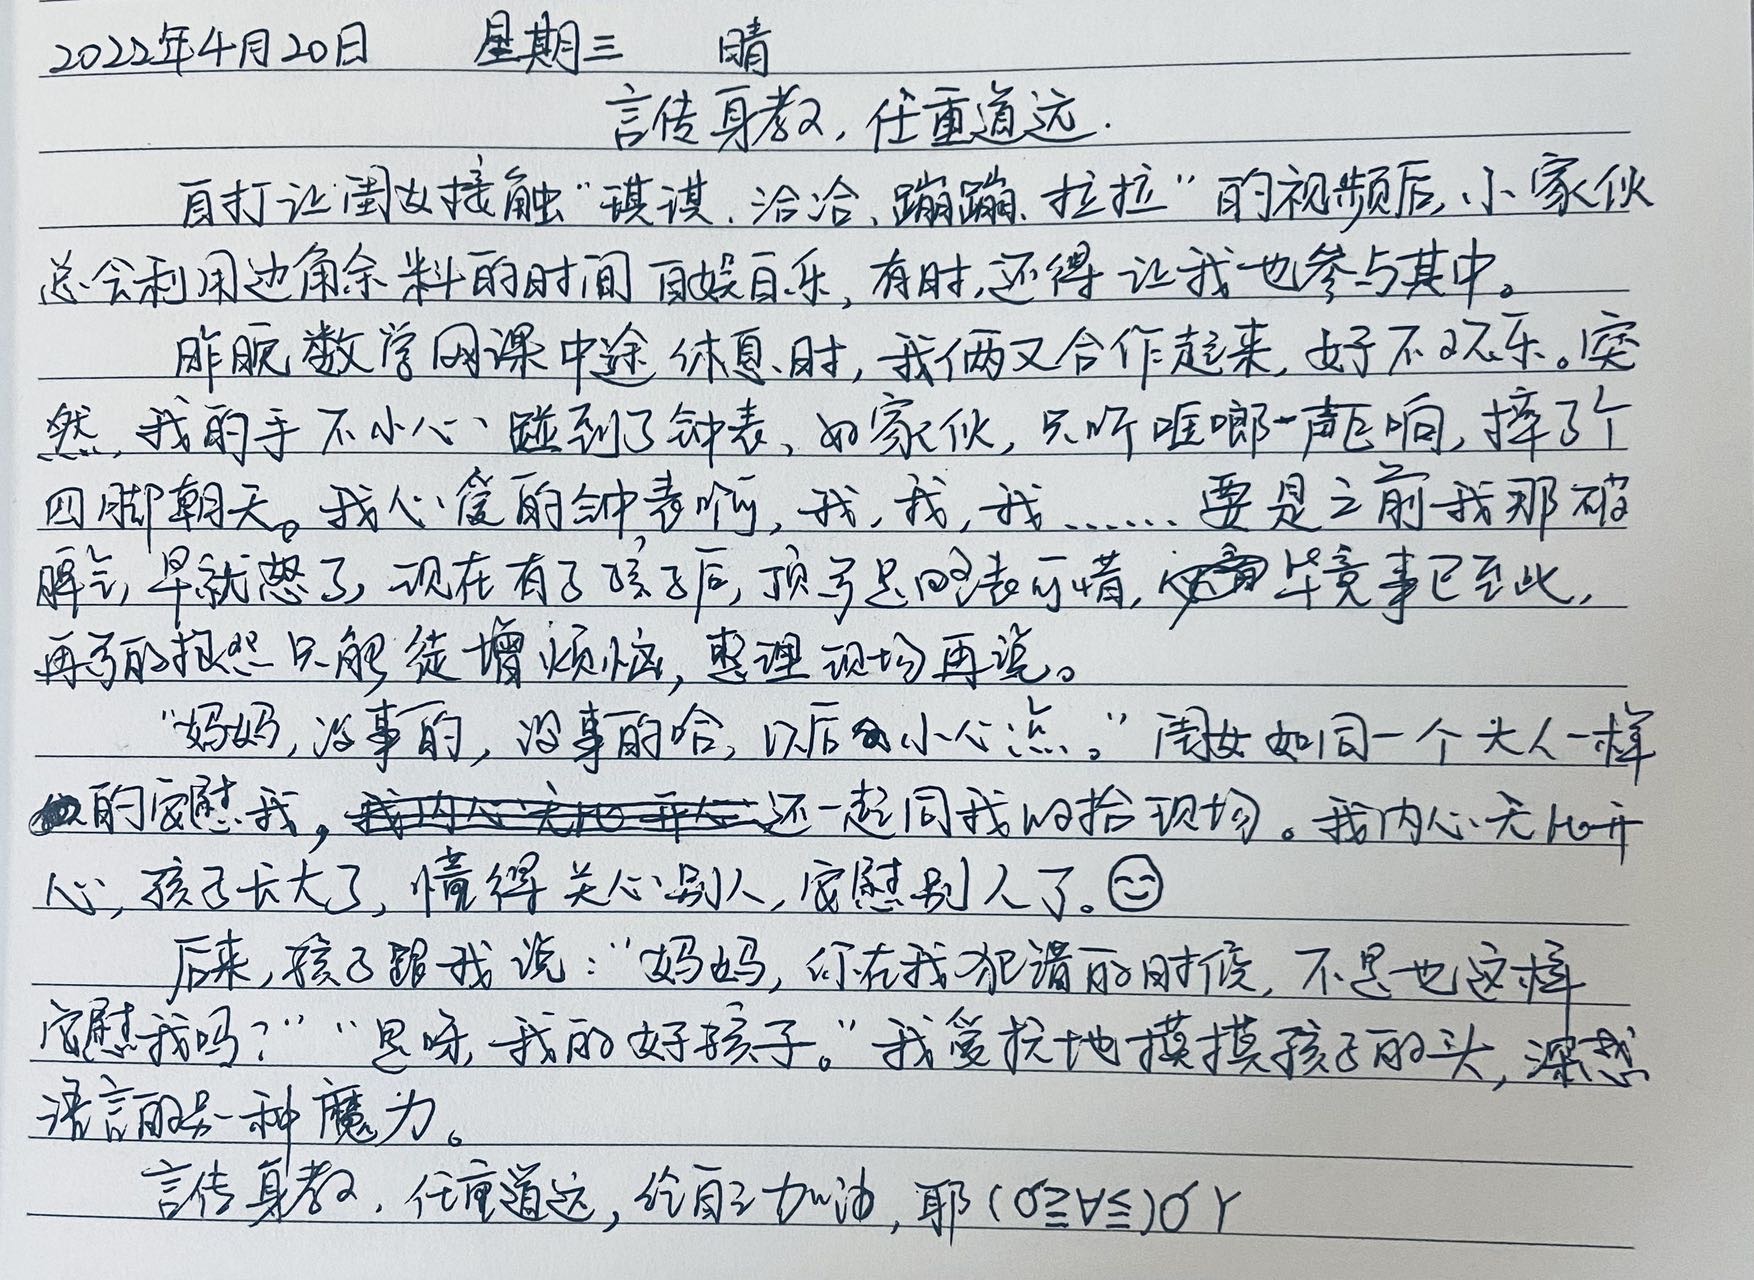 2022年4月20日 星期三 晴
言传身教，任重道远.
自打让闺女接触“琪琪、洽洽、蹦蹦、拉拉”的视频后，小家伙
总会利用边角余料的时间自娱自乐，有时，还得让我也参与其中。
昨晚数学网课中途休息时，我俩又合作起来，好不欢乐。突
然，我的手不小心碰到了钟表，好家伙，只听哐啷一声巨响，摔了个
四脚朝天。我心爱的钟表啊，我，我，我……要是之前我那破
脾气，早就怒了，现在有了孩子后，顶多是略表可惜，毕竟事已至此，
再多的抱怨只能徒增烦恼，整理现场再说。
“妈妈，没事的，没事的哈，以后小心点。”闺女如同一个大人一样
的安慰我，还一起同我收拾现场。我内心无比开
心，孩子长大了，懂得关心别人，安慰别人了。😊
后来，孩子跟我说：“妈妈，你在我犯错的时候，不是也这样
安慰我吗？”“是呀，我的好孩子。”我爱抚地摸摸孩子的头，深感
语言的另一种魔力。
言传身教，任重道远，给自己加油，耶(σ≧∀≦)σY